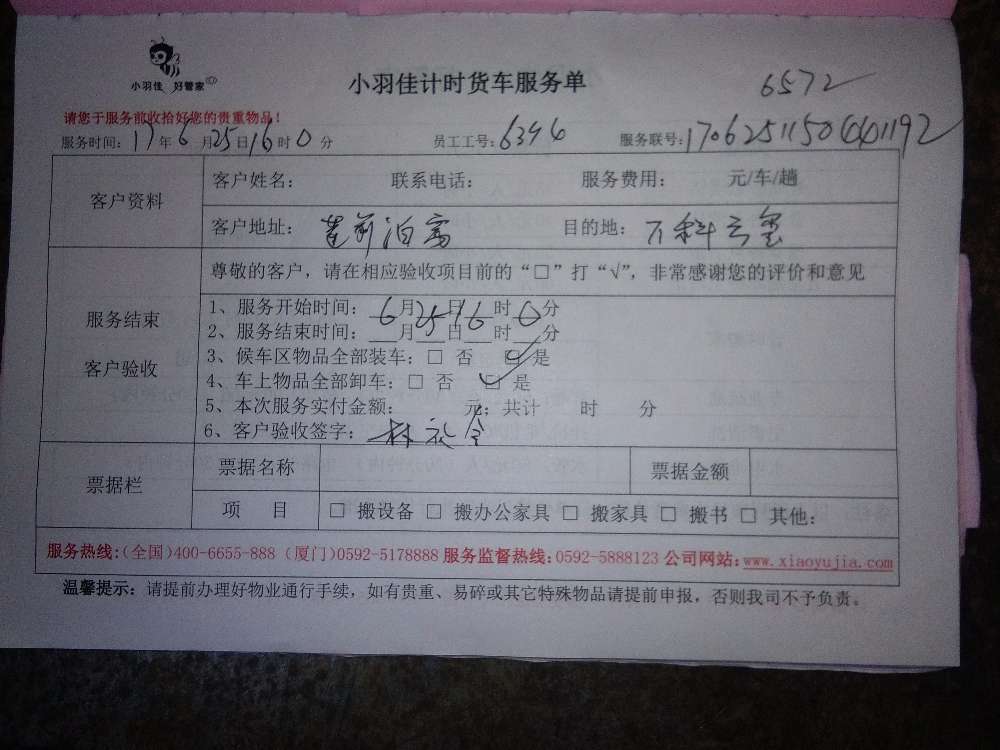 小羽佳 好管家
小羽佳计时货车服务单
6572
请您于服务前收拾好您的贵重物品！
服务时间：17年6月25日16时0分 员工工号：6394 服务联号：
客户资料
客户姓名： 联系电话： 服务费用： 元/车/趟
客户地址： 目的地：万科云玺
服务结束
客户验收
尊敬的客户，请在相应验收项目前的“□”打“√”，非常感谢您的评价和意见
1、服务开始时间：6月25日16时0分
2、服务结束时间：__月__日__时__分
3、候车区物品全部装车：□ 否 ☑ 是
4、车上物品全部卸车：□ 否 ☑ 是
5、本次服务实付金额： 元；共计 时 分
6、客户验收签字：林
票据栏
票据名称 票据金额
项 目 □ 搬设备 □ 搬办公家具 □ 搬家具 □ 搬书 □ 其他：
服务热线：(全国)400-6655-888 (厦门)0592-5178888 服务监督热线：0592-5888123 公司网站：www.xiaoyujia.com
温馨提示：请提前办理好物业通行手续，如有贵重、易碎或其它特殊物品请提前申报，否则我司不予负责。